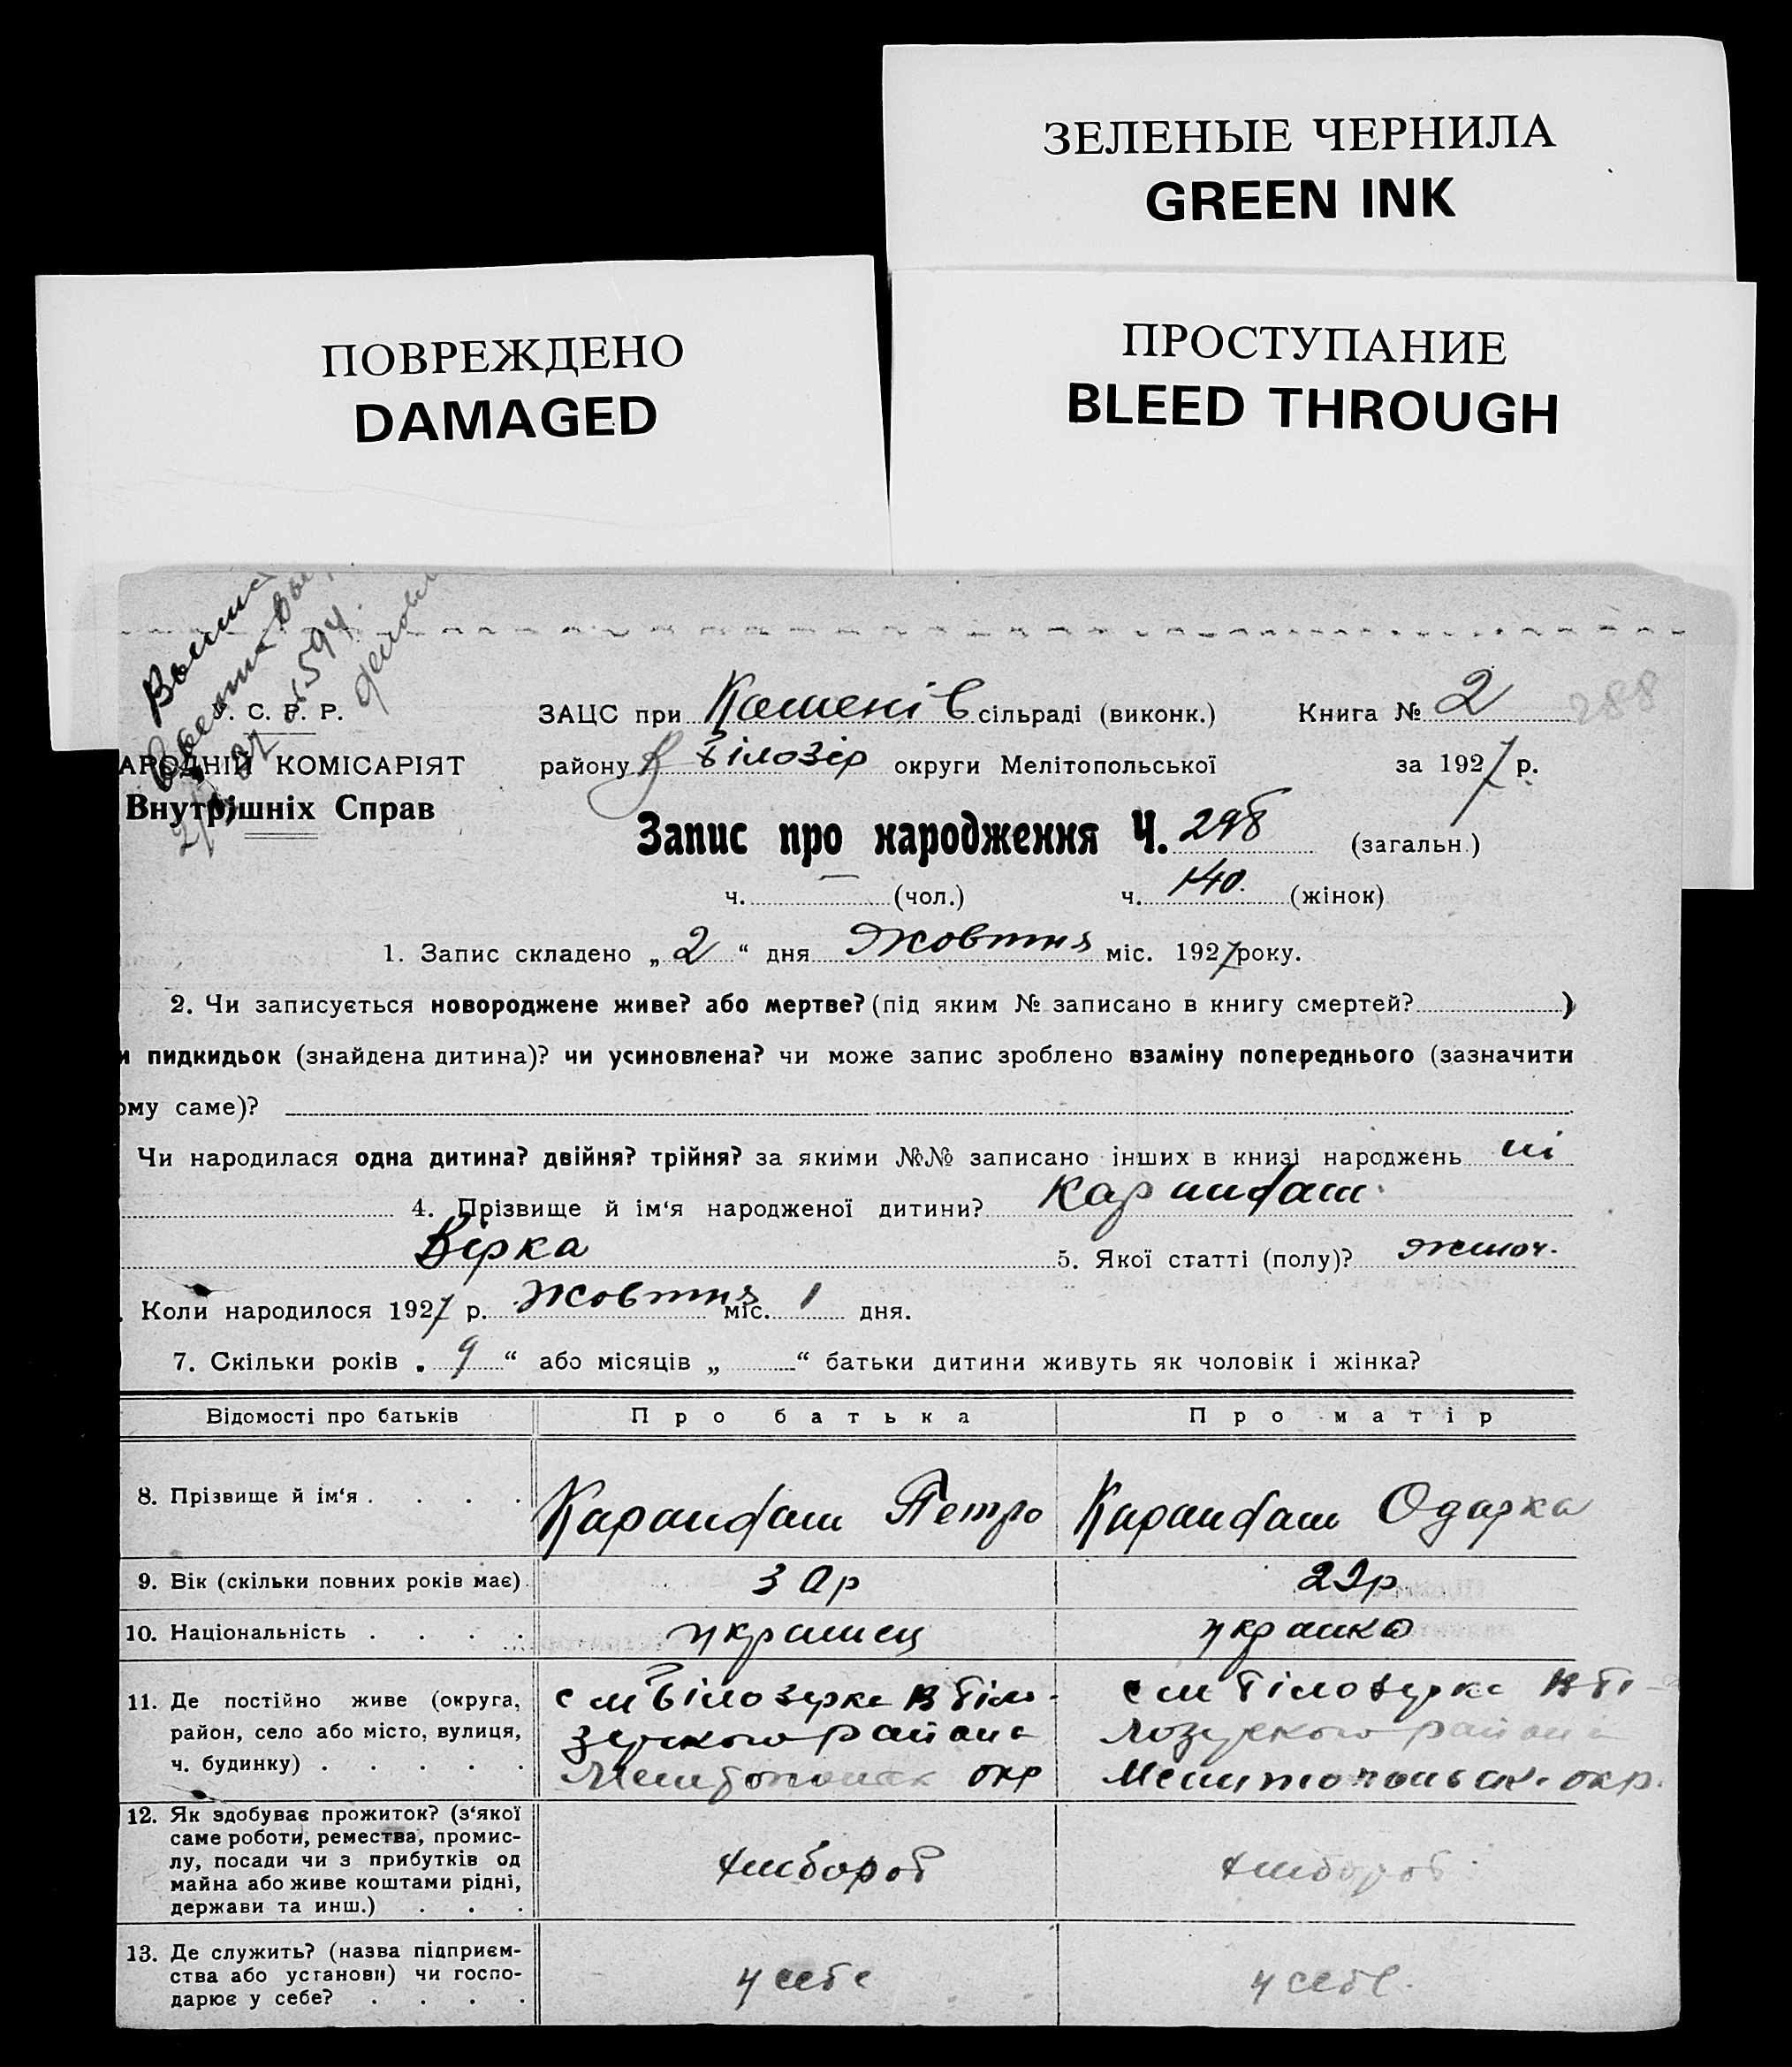 ЗЕЛЕНЫЕ ЧЕРНИЛА
GREEN INK
ПОВРЕЖДЕНО
DAMAGED
ПРОСТУПАНИЕ
BLEED THROUGH
594
С. Р. Р.
АРОДНІЙ КОМІСАРІЯТ
Внутрішніх Справ
ЗАЦС при Каменів сільраді (виконк.) Книга № 2 288
району В Білозір округи Мелітопольської за 1927 р.
Запис про народження Ч. 298 (загальн.)
ч. (чол.) ч. 140. (жінок)
1. Запис складено „ 2 “ дня Жовтня міс. 1927 року.
2. Чи записується новороджене живе? або мертве? (під яким № записано в книгу смертей? )
и пидкидьок (знайдена дитина)? чи усиновлена? чи може запис зроблено взаміну попереднього (зазначити
ому саме)?
Чи народилася одна дитина? двійня? трійня? за якими №№ записано інших в книзі народжень ні
4. Прізвище й ім‘я народженої дитини? Карандаш
Вірка 5. Якої статті (полу)? жіноч.
. Коли народилося 1927 р. Жовтня міс. 1 дня.
7. Скільки років „ 9 “ або місяців „ “ батьки дитини живуть як чоловік і жінка?
Відомості про батьків Про батька Про матір
8. Прізвище й ім‘я . . . . Карандаш Петро Карандаш Одарка
9. Вік (скільки повних років має) 30р 29р
10. Національність . . . . украинец украінка
11. Де постійно живе (округа, район, село або місто, вулиця, ч. будинку) . . . . .
с м Білозерке В Біло-
зерского района
Мелітопольск окр
с м Білозерке В Бі-
лозерского района
Мелитопольск. окр.
12. Як здобуває прожиток? (з‘якої саме роботи, ремества, промис-
лу, посади чи з прибутків од
майна або живе коштами рідні,
держави та инш.) . . . хлибороб хлибороб
13. Де служить? (назва підприєм-
ства або установи) чи госпо-
дарює у себе? . . . . у себе у себе.